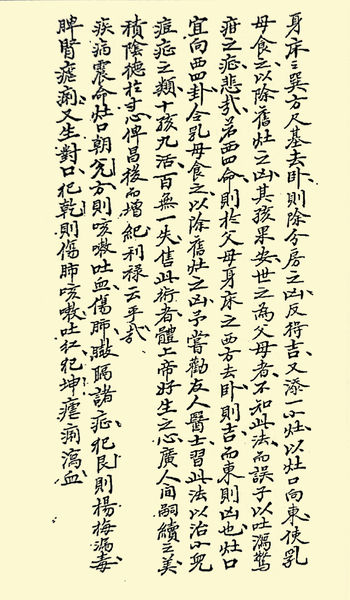 身床之巽方尺基去卧則除分房之凶反得吉又添一小灶以灶口向東使乳
母食之以除舊灶之凶其孩果安世之為父母者不知此法而誤子以吐瀉驚
疳之症悲哉若西四命則於父母身床之西方去卧則吉而東則凶也灶口
宜向西四卦令乳母食之以除舊灶之凶予嘗勸友人醫士習此法以治小兒
痘症之類十孩九活百無一失售此術者體上帝好生之心廣人間嗣續之美
積陰德於寸心俾昌後而增紀利祿云乎哉
疾病震命灶口朝兌方則咳嗽吐血傷肺臌膈諸症犯艮則楊梅瘋毒
脾腎瘧痢又生對口犯乾則傷肺咳嗽吐红犯坤瘧痢瀉血